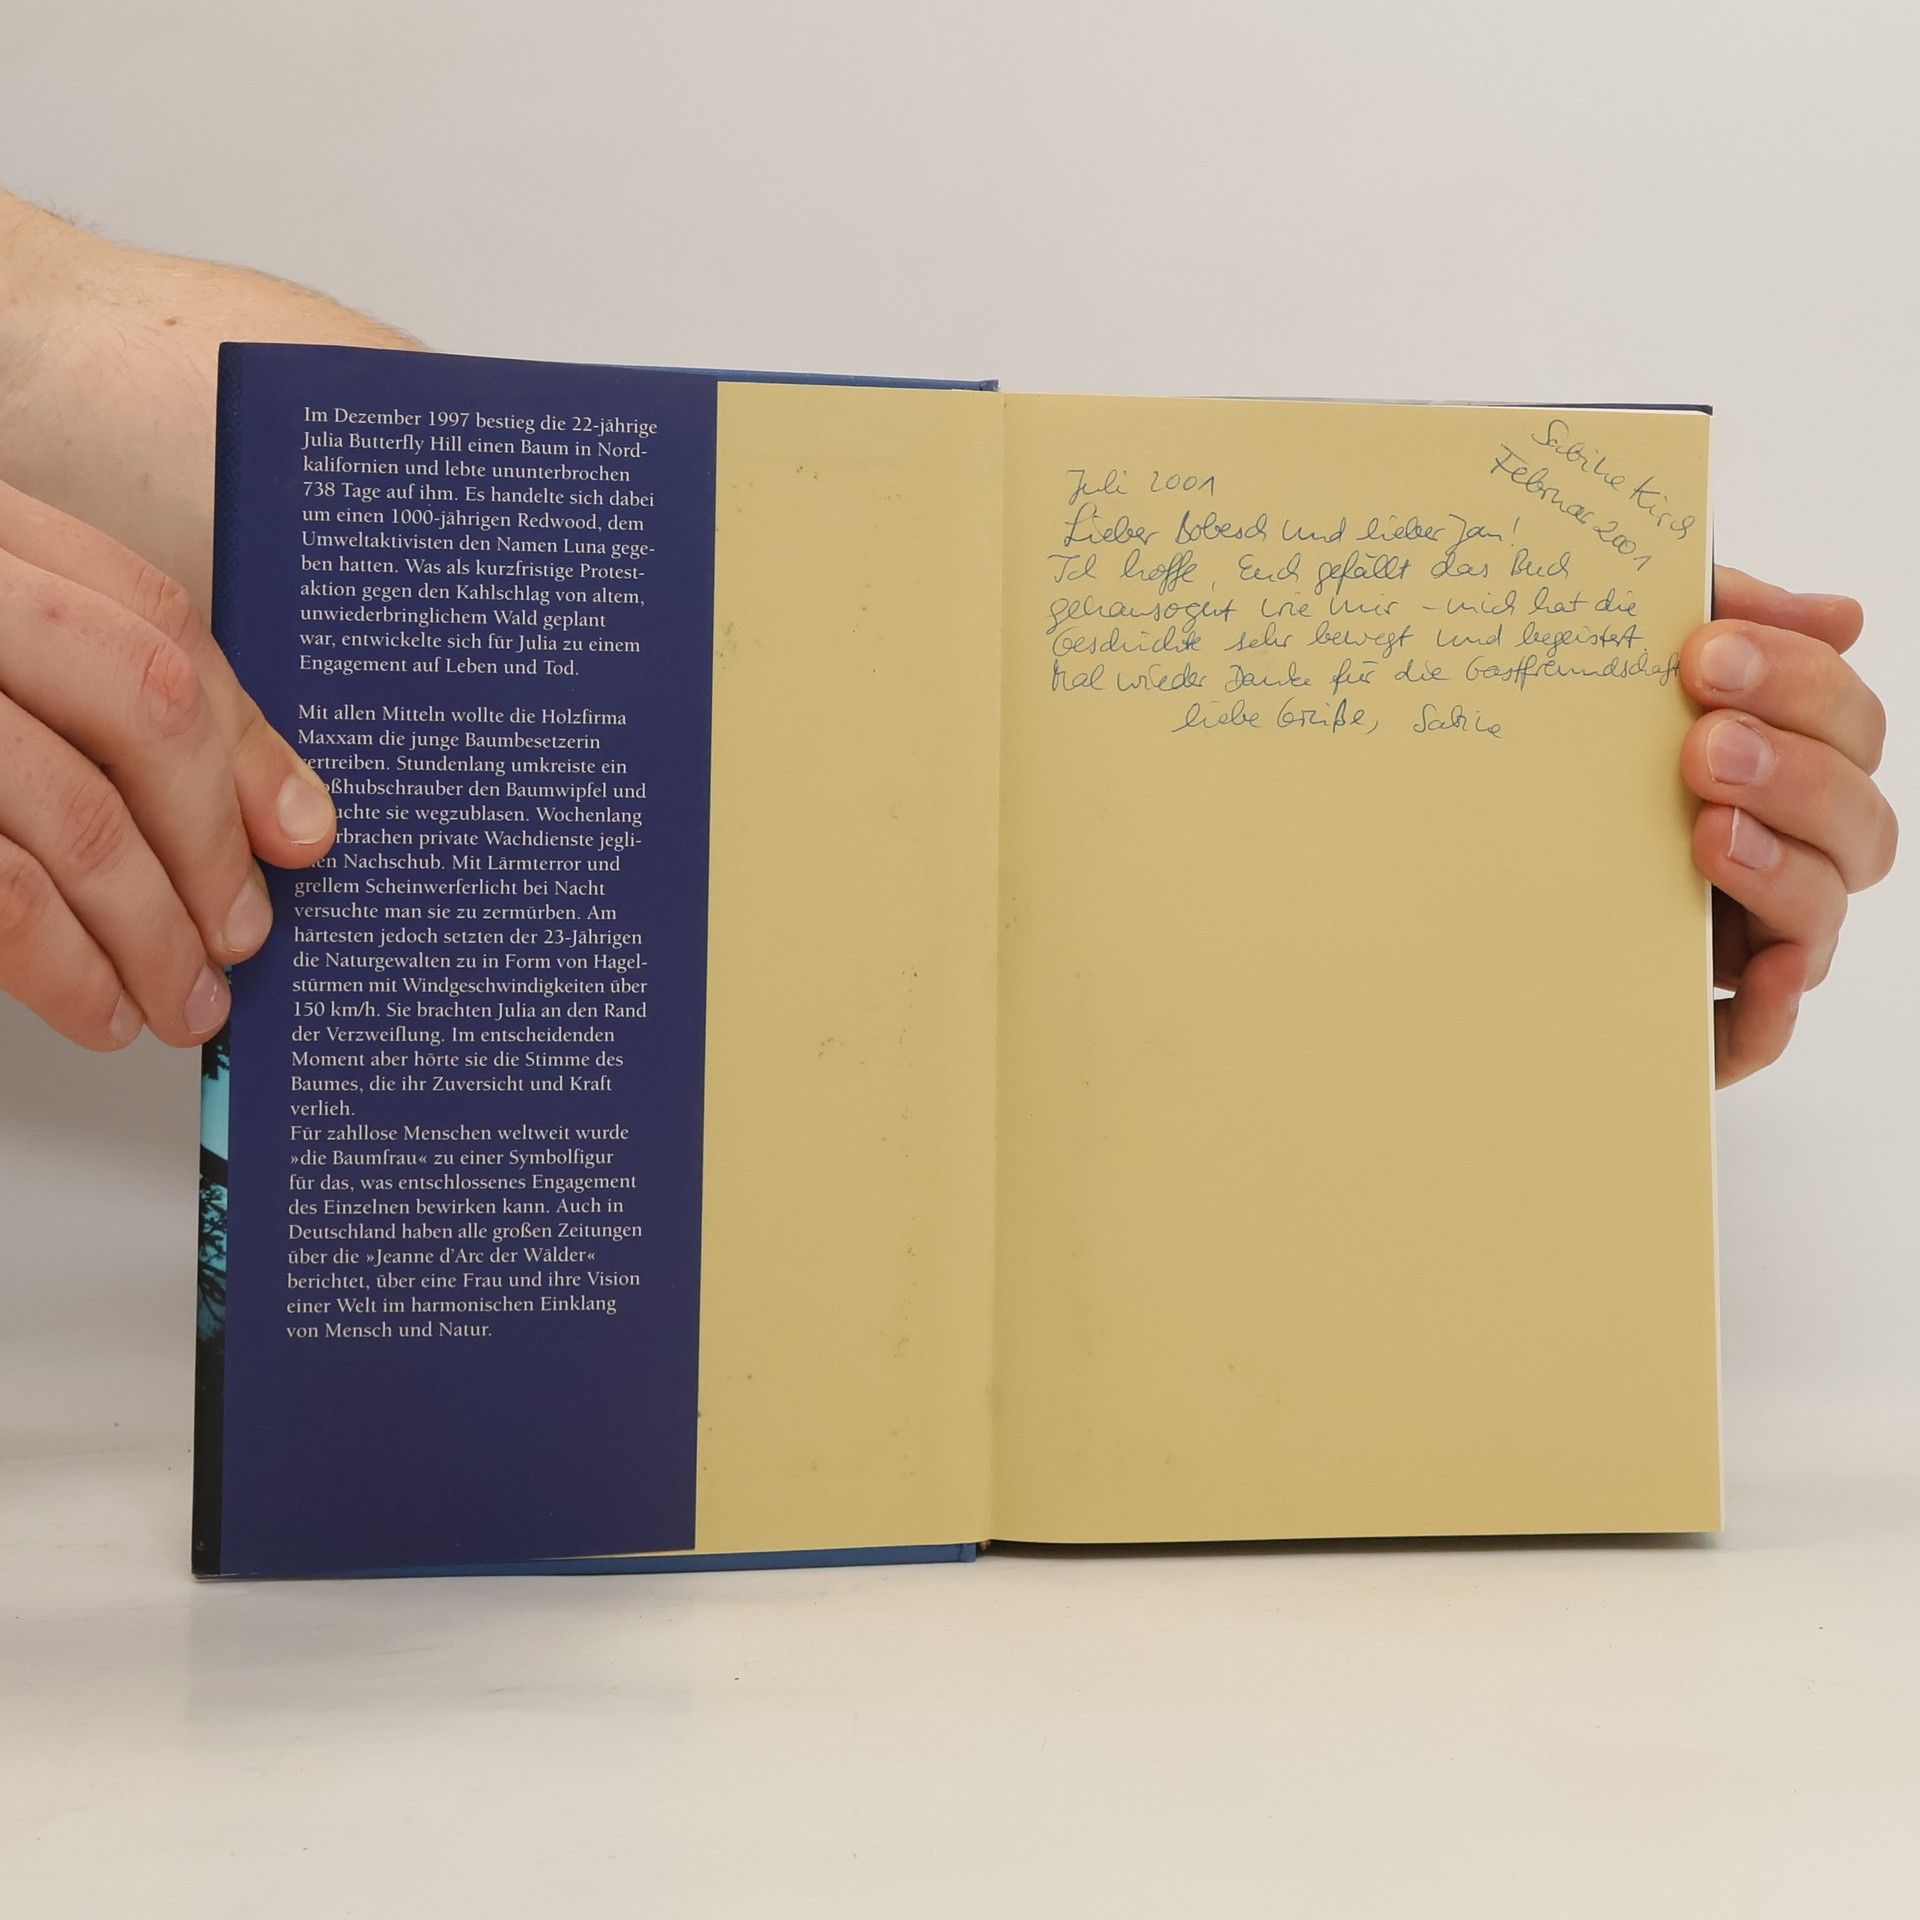 Im Dezember 1997 bestieg die 22-jährige
Julia Butterfly Hill einen Baum in Nord-
kalifornien und lebte ununterbrochen
738 Tage auf ihm. Es handelte sich dabei
um einen 1000-jährigen Redwood, dem
Umweltaktivisten den Namen Luna gege-
ben hatten. Was als kurzfristige Protest-
aktion gegen den Kahlschlag von altem,
unwiederbringlichem Wald geplant
war, entwickelte sich für Julia zu einem
Engagement auf Leben und Tod.
Mit allen Mitteln wollte die Holzfirma
Maxxam die junge Baumbesetzerin
ertreiben. Stundenlang umkreiste ein
oßhubschrauber den Baumwipfel und
uchte sie wegzublasen. Wochenlang
rbrachen private Wachdienste jegli-
en Nachschub. Mit Lärmterror und
grellem Scheinwerferlicht bei Nacht
versuchte man sie zu zermürben. Am
härtesten jedoch setzten der 23-Jährigen
die Naturgewalten zu in Form von Hagel-
stürmen mit Windgeschwindigkeiten über
150 km/h. Sie brachten Julia an den Rand
der Verzweiflung. Im entscheidenden
Moment aber hörte sie die Stimme des
Baumes, die ihr Zuversicht und Kraft
verlieh.
Für zahllose Menschen weltweit wurde
»die Baumfrau« zu einer Symbolfigur
für das, was entschlossenes Engagement
des Einzelnen bewirken kann. Auch in
Deutschland haben alle großen Zeitungen
über die »Jeanne d'Arc der Wälder«
berichtet, über eine Frau und ihre Vision
einer Welt im harmonischen Einklang
von Mensch und Natur.
Sabine Kirch
Februar 2001
Juli 2001
Lieber Bobesch und lieber Jan!
Ich hoffe, Euch gefällt das Buch
genausogut wie mir - mich hat die
Geschichte sehr bewegt und begeistert.
Mal wieder Danke für die Gastfreundschaft
liebe Grüße, Sabine